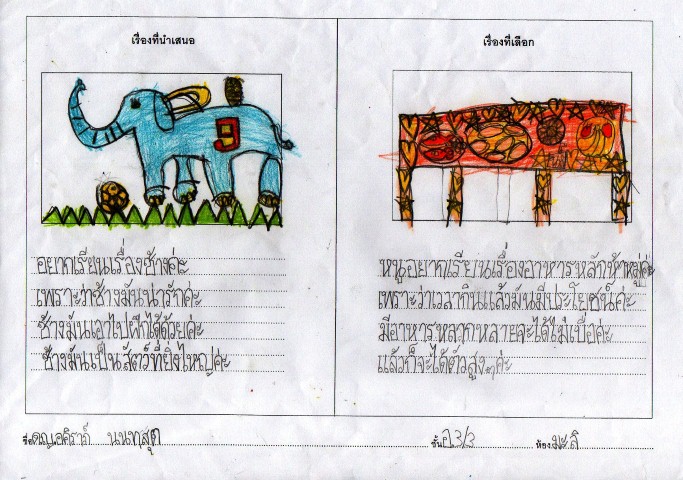 เรื่องที่นำเสนอ
เรื่องที่เลือก
9
อยากเรียนเรื่องช้างค่ะ
เพราะว่าช้างมันน่ารักค่ะ
ช้างมันเอาไปฝึกได้ด้วยค่ะ
ช้างมันเป็นสัตว์ที่ยิ่งใหญ่ค่ะ
หนูอยากเรียนเรื่องอาหารหลักห้าหมู่ค่ะ
เพราะว่าเวลากินแล้วมันมีประโยชน์ค่ะ
มีอาหารหลากหลายจะได้ไม่เบื่อค่ะ
แล้วก็จะได้ตัวสูงๆค่ะ
ชื่อ ด.ญ. นนทสุต ชั้น อ.3/3 ห้อง มะลิ